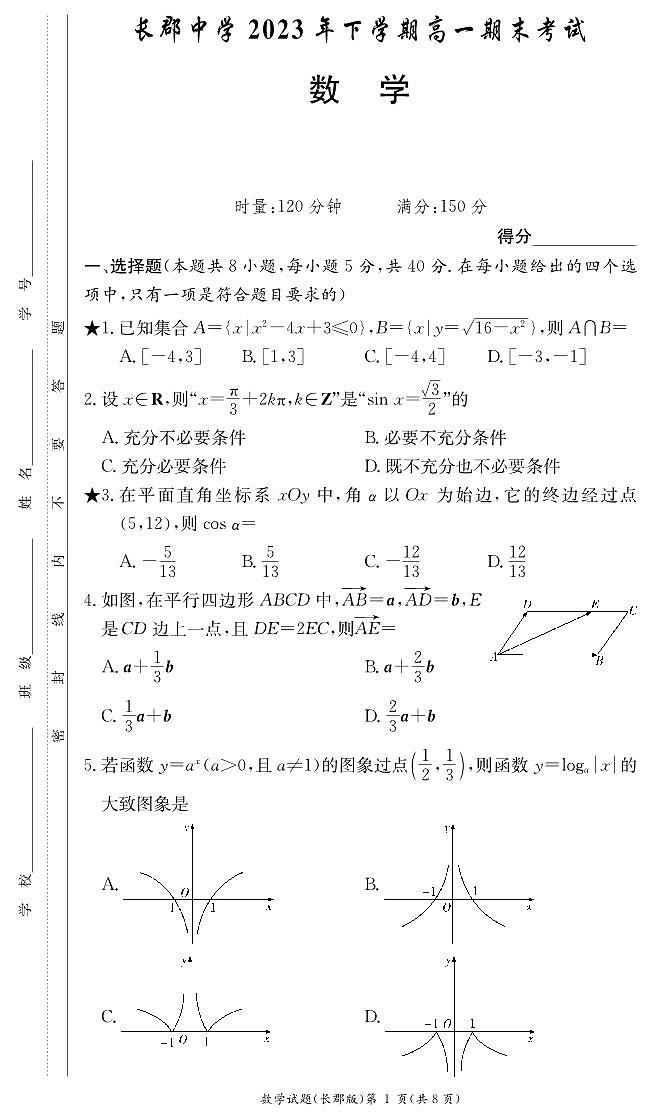 长郡中学 2023 年下学期高一期末考试
数 学
时量:120 分钟 满分:150 分
得分
一、选择题(本题共 8 小题,每小题 5 分,共 40 分. 在每小题给出的四个选
项中,只有一项是符合题目要求的)
★1. 已知集合 A={x|x²-4x+3≤0},B={x|y=√(16-x²)},则 A∩B=
A. [-4,3] B. [1,3] C. [-4,4] D. [-3,-1]
2. 设 x∈R,则“x=π/3+2kπ,k∈Z”是“sin x=√3/2”的
A. 充分不必要条件 B. 必要不充分条件
C. 充分必要条件 D. 既不充分也不必要条件
★3. 在平面直角坐标系 xOy 中,角 α 以 Ox 为始边,它的终边经过点
(5,12),则 cos α=
A. -5/13 B. 5/13 C. -12/13 D. 12/13
4. 如图,在平行四边形 ABCD 中,AB→=a,AD→=b,E
是CD 边上一点,且 DE=2EC,则AE→=
D E C
A B
A. a+1/3b B. a+2/3b
C. 1/3a+b D. 2/3a+b
5. 若函数 y=aˣ(a>0,且 a≠1)的图象过点(1/2,1/3),则函数 y=logₐ|x|的
大致图象是
A. y O -1 1 x
B. y -1 O 1 x
C. y -1 O 1 x
D. y -1 O 1 x
数学试题(长郡版)第 1 页(共 8 页)
学校 班级 姓名 学号
密 封 线 内 不 要 答 题